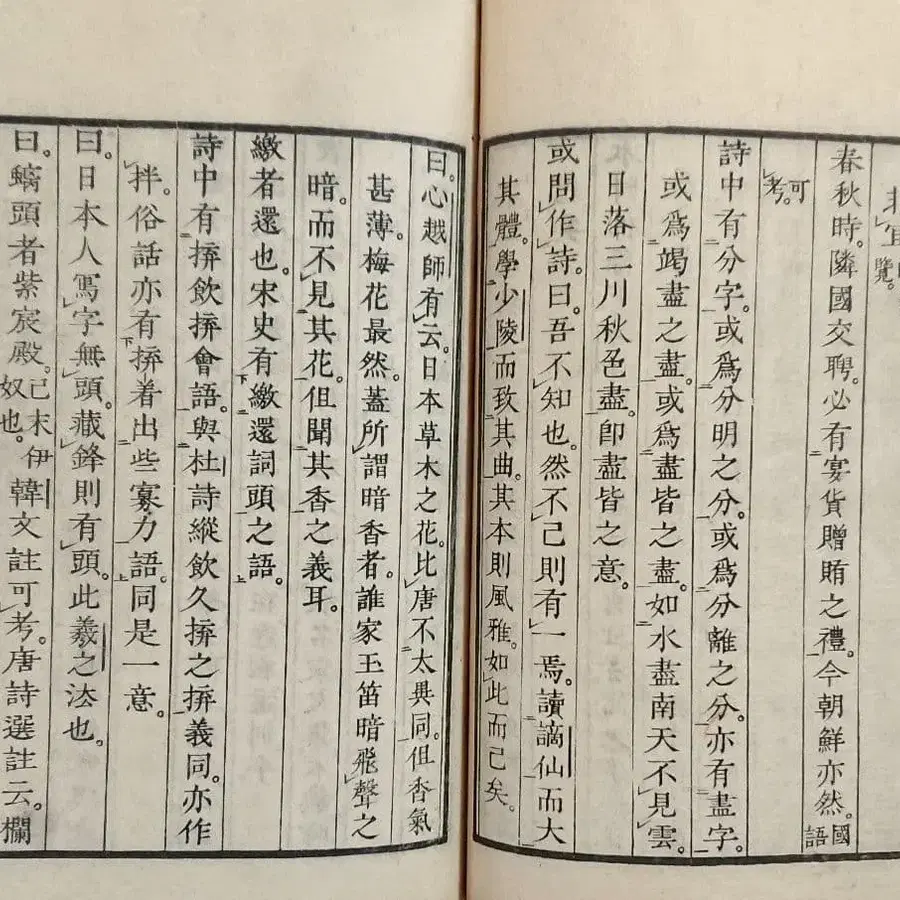 宜覽。
春秋時。隣國交聘。必有宴貨贈賄之禮。今朝鮮亦然。國語
可考。
詩中有分字。或爲分明之分。或爲分離之分。亦有盡字。
或爲竭盡之盡。或爲盡皆之盡。如水盡南天不見雲。
日落三川秋色盡。卽盡皆之意。
或問作詩。曰。吾不知也。然不已則有一焉。讀謫仙而大
其體。學少陵而致其曲。其本則風雅。如此而已矣。
曰。心越師有云。日本草木之花。比唐不太異同。但香氣
甚薄。梅花最然。蓋所謂暗香者。誰家玉笛暗飛聲之
暗。而不見其花。但聞其香之義耳。
繳者還也。宋史有繳還詞頭之語。
詩中有拚飲拚會語。與杜詩縱飲久拚之拚義同。亦作
拌。俗話亦有拚着出些寡力語。同是一意。
曰。日本人寫字無頭。藏鋒則有頭。此羲之法也。
曰。螭頭者紫宸殿。己未伊奴也。韓文註可考。唐詩選註云。欄